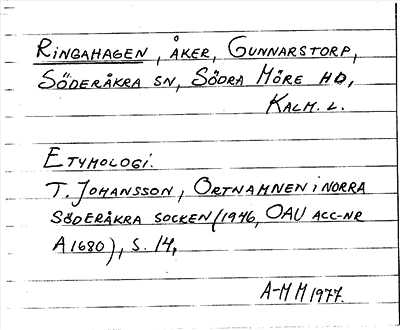 RINGAHAGEN, ÅKER, GUNNARSTORP,
SÖDERÅKRA SN, SÖDRA MÖRE HD,
KALM. L.
ETYMOLOGI.
T. JOHANSSON, ORTNAMNEN I NORRA
SÖDERÅKRA SOCKEN (1946, OAU ACC-NR
A1680), S. 14,
A-M M 1977.